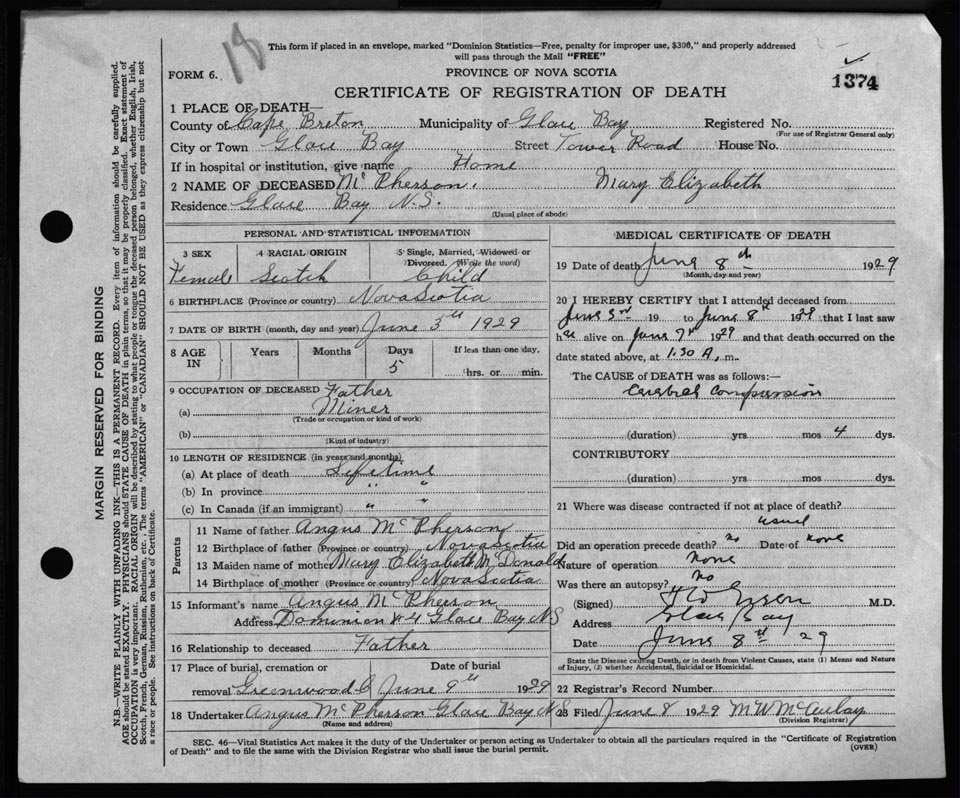 18
This form if placed in an envelope, marked "Dominion Statistics—Free, penalty for improper use, $300," and properly addressed
will pass through the Mail "FREE"
FORM 6.
PROVINCE OF NOVA SCOTIA
1374
CERTIFICATE OF REGISTRATION OF DEATH
1 PLACE OF DEATH—
County of Cape Breton Municipality of Glace Bay Registered No.
(For use of Registrar General only)
City or Town Glace Bay Street Tower Road House No.
If in hospital or institution, give name Home
2 NAME OF DECEASED McPherson, Mary Elizabeth
Residence Glace Bay N.S.
(Usual place of abode)
PERSONAL AND STATISTICAL INFORMATION
3 SEX 4 RACIAL ORIGIN 5 Single, Married, Widowed or
Divorced. (Write the word)
Female Scotch Child
6 BIRTHPLACE (Province or country) Nova Scotia
7 DATE OF BIRTH (month, day and year) June 3rd 1929
8 AGE IN Years Months Days If less than one day,
5 hrs. or min.
9 OCCUPATION OF DECEASED Father
(a) Miner
(Trade or occupation or kind of work)
(b)
(Kind of industry)
10 LENGTH OF RESIDENCE (in years and months)
(a) At place of death Lifetime
(b) In province " "
(c) In Canada (if an immigrant) " "
Parents
11 Name of father Angus McPherson
12 Birthplace of father (Province or country) Nova Scotia
13 Maiden name of mother Mary Elizabeth McDonald
14 Birthplace of mother (Province or country) Nova Scotia
15 Informant's name Angus McPherson
Address Dominion #4 Glace Bay NS
16 Relationship to deceased Father
17 Place of burial, cremation or Date of burial
removal Greenwood C June 9th 1929
18 Undertaker Angus McPherson Glace Bay N S
(Name and address)
MEDICAL CERTIFICATE OF DEATH
19 Date of death June 8th 1929
(Month, day and year)
20 I HEREBY CERTIFY that I attended deceased from
June 3rd 19 to June 8th 1929 that I last saw
h alive on June 7th 1929 and that death occurred on the
date stated above, at 1.30 A. m.
The CAUSE of DEATH was as follows:—
Cerebral Compression
(duration) yrs mos 4 dys.
CONTRIBUTORY
(duration) yrs mos dys.
21 Where was disease contracted if not at place of death?
usual
Did an operation precede death? no Date of none
Nature of operation none
Was there an autopsy? no
(Signed) M.D.
Address Glace Bay
Date June 8th 29
State the Disease causing Death, or in death from Violent Causes, state (1) Means and Nature
of Injury, (2) whether Accidental, Suicidal or Homicidal.
22 Registrar's Record Number
23 Filed June 8 1929 M W McAulay
(Division Registrar)
SEC. 46—Vital Statistics Act makes it the duty of the Undertaker or person acting as Undertaker to obtain all the particulars required in the "Certificate of Registration
of Death" and to file the same with the Division Registrar who shall issue the burial permit.
(OVER)
MARGIN RESERVED FOR BINDING
N.B.—WRITE PLAINLY WITH UNFADING INK—THIS IS A PERMANENT RECORD. Every item of information should be carefully supplied.
AGE should be stated EXACTLY. PHYSICIANS should STATE CAUSE OF DEATH in plain terms, so that it may be properly classified. Exact statement of
OCCUPATION is very important. RACIAL ORIGIN will be described by stating to what people or tongue the deceased person belonged, whether English, Irish,
Scotch, French, German, Russian, Ruthenian, etc. The terms "AMERICAN" or "CANADIAN" SHOULD NOT BE USED as they express citizenship but not
a race or people. See instructions on back of Certificate.